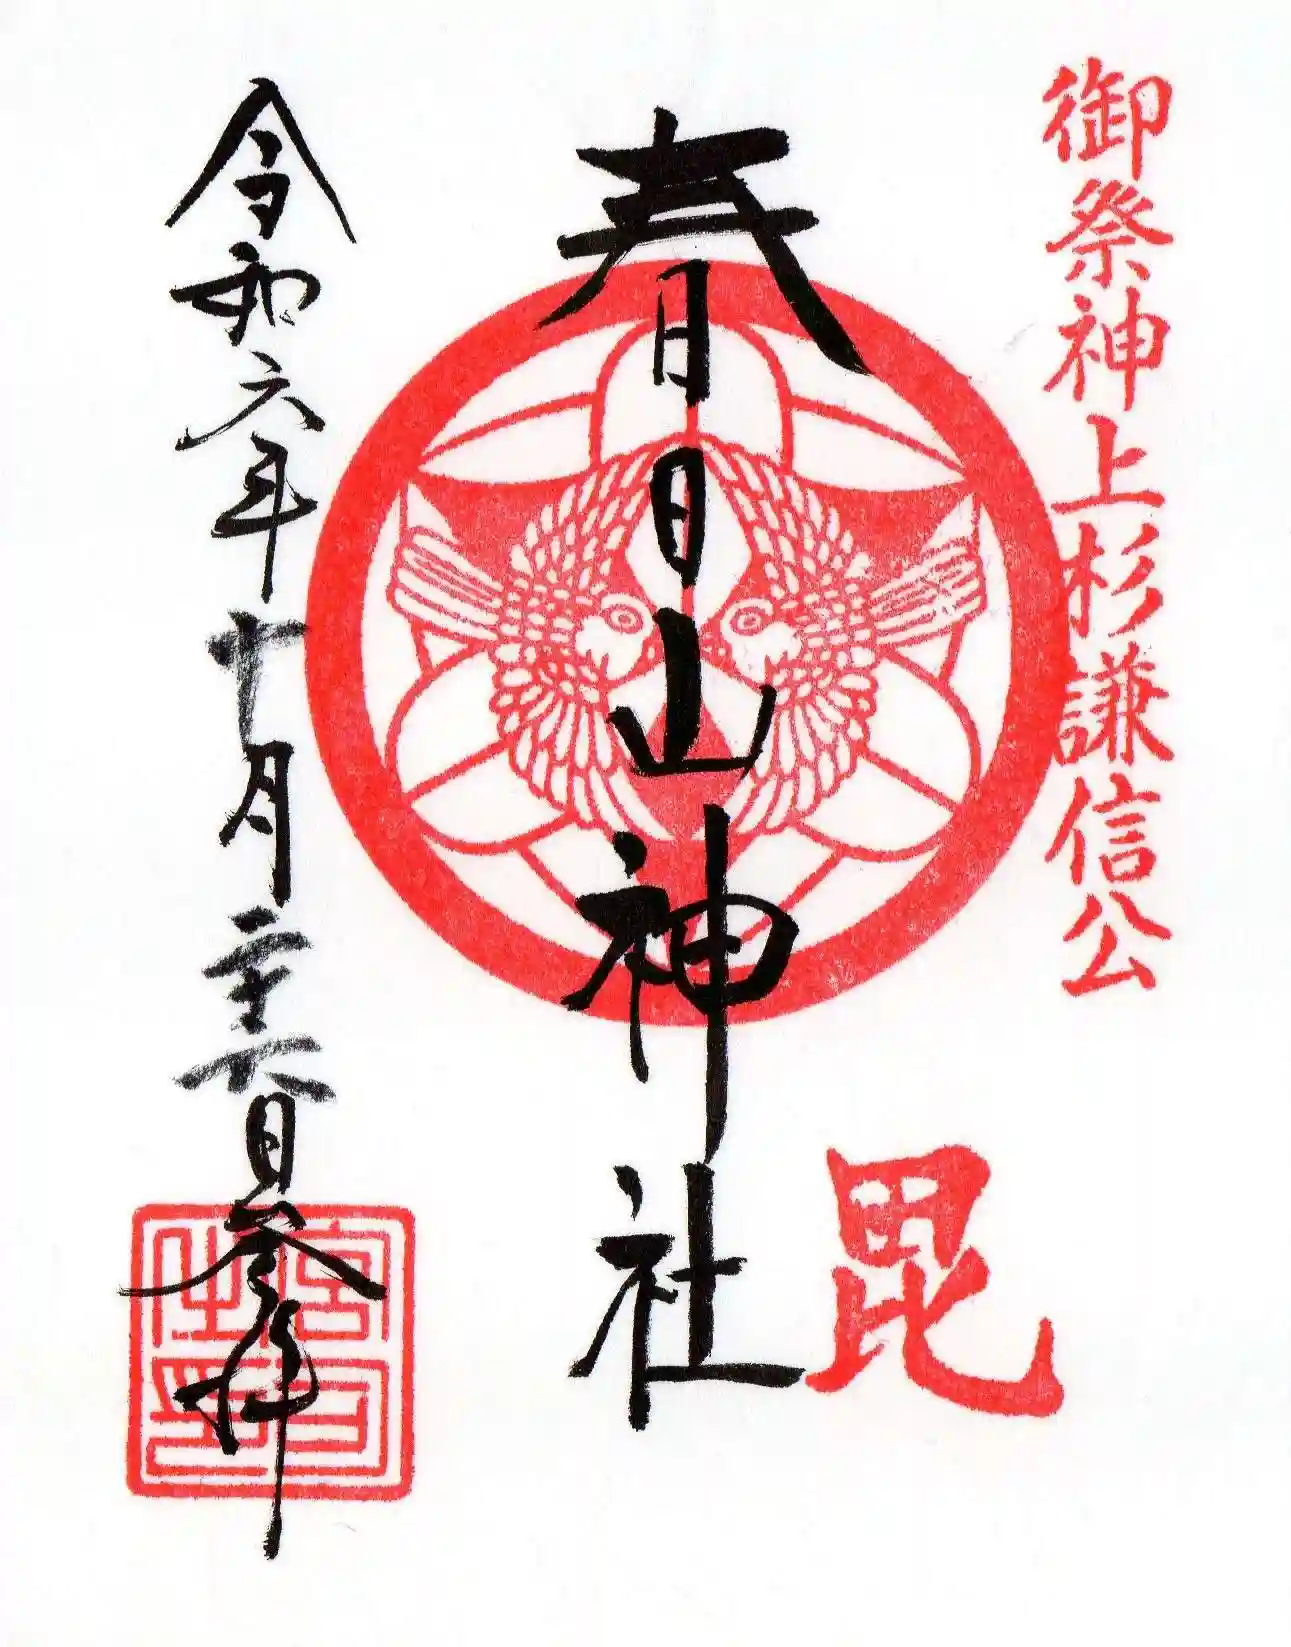 御祭神上杉謙信公
毘
春日山神社
令和六年十月二十六日参拝
宮司
之印